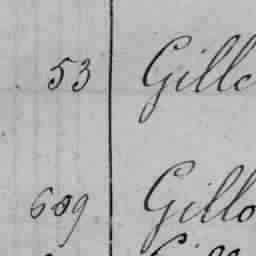 53 Gille
609 Gillo